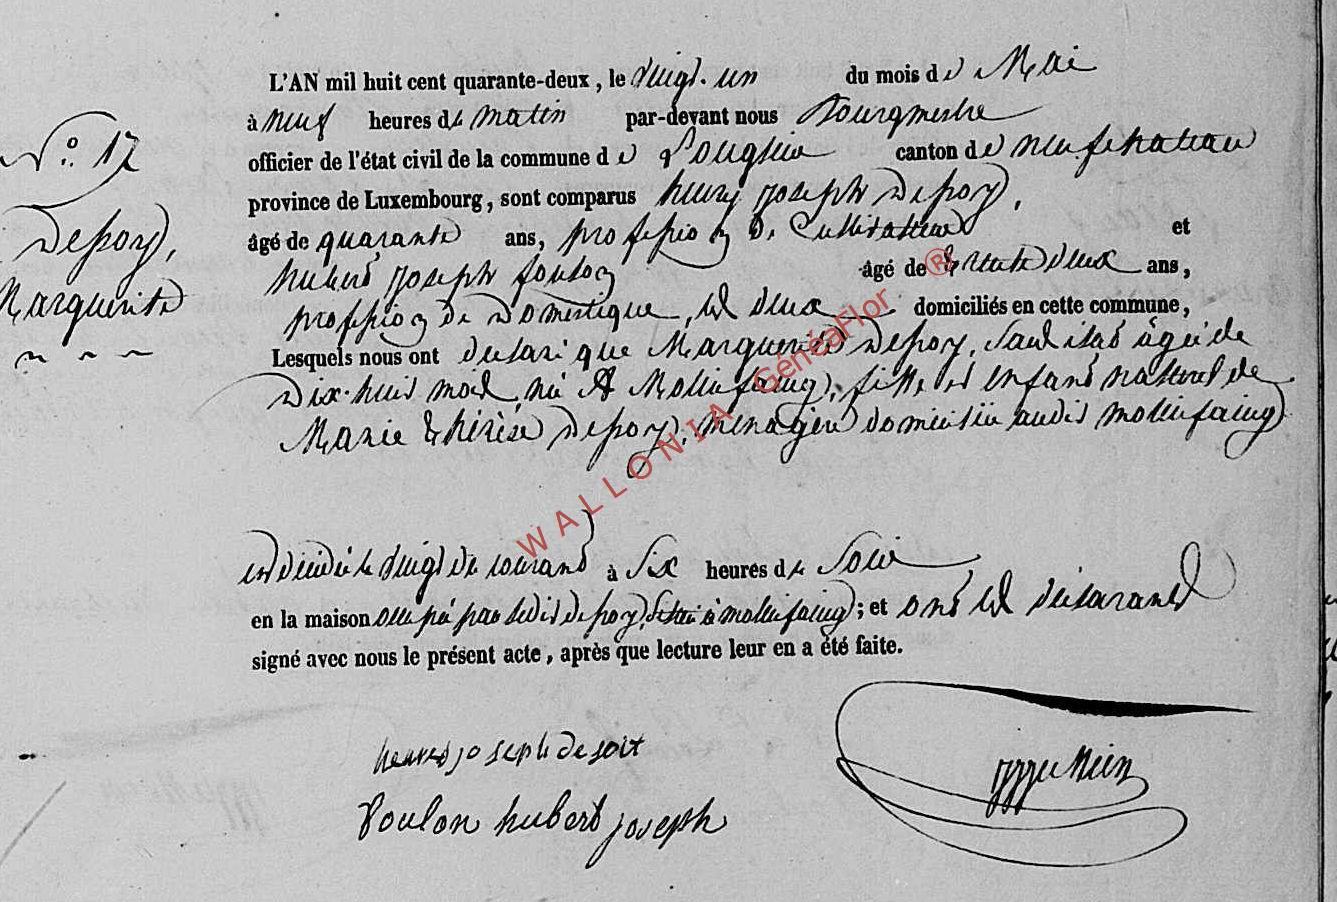 N.° 17
Depoy,
Marguerite
L'AN mil huit cent quarante-deux, le vingt-un du mois de Mai
à neuf heures du matin par-devant nous Bourgmestre
officier de l'état civil de la commune de Longlier canton de neufchateau
province de Luxembourg, sont comparus henry joseph Depoy,
âgé de quarante ans, profession de Cultivateur et
hubert joseph foulon âgé de trente deux ans,
profession de Domestique, les deux domiciliés en cette commune,
Lesquels nous ont declaré que Marguerite Depoy, agée de
Dix-huit mois, née à Molinfaing, fille et enfant naturel de
Marie thérèse Depoy, ménagère domiciliée audit molinfaing
est décédée le vingt du courant à Six heures du Soir
en la maison occupée par ledit depoy, située à molinfaing; et ont les déclarants
signé avec nous le présent acte, après que lecture leur en a été faite.
henri joseph
foulon hubert joseph
WALLONIA GénéaFlor ®